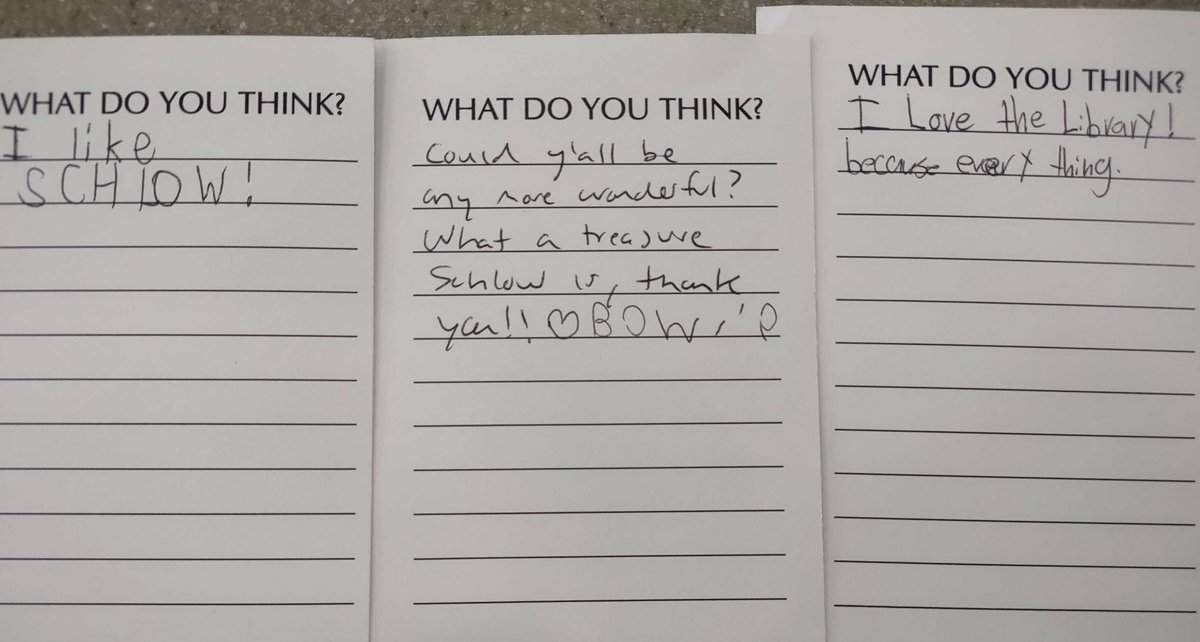 WHAT DO YOU THINK?
I like
SCHLOW!
WHAT DO YOU THINK?
Could y'all be
any more wonderful?
What a treasure
Schlow is, thank
you!! ♡
WHAT DO YOU THINK?
I Love the Library!
because every thing.